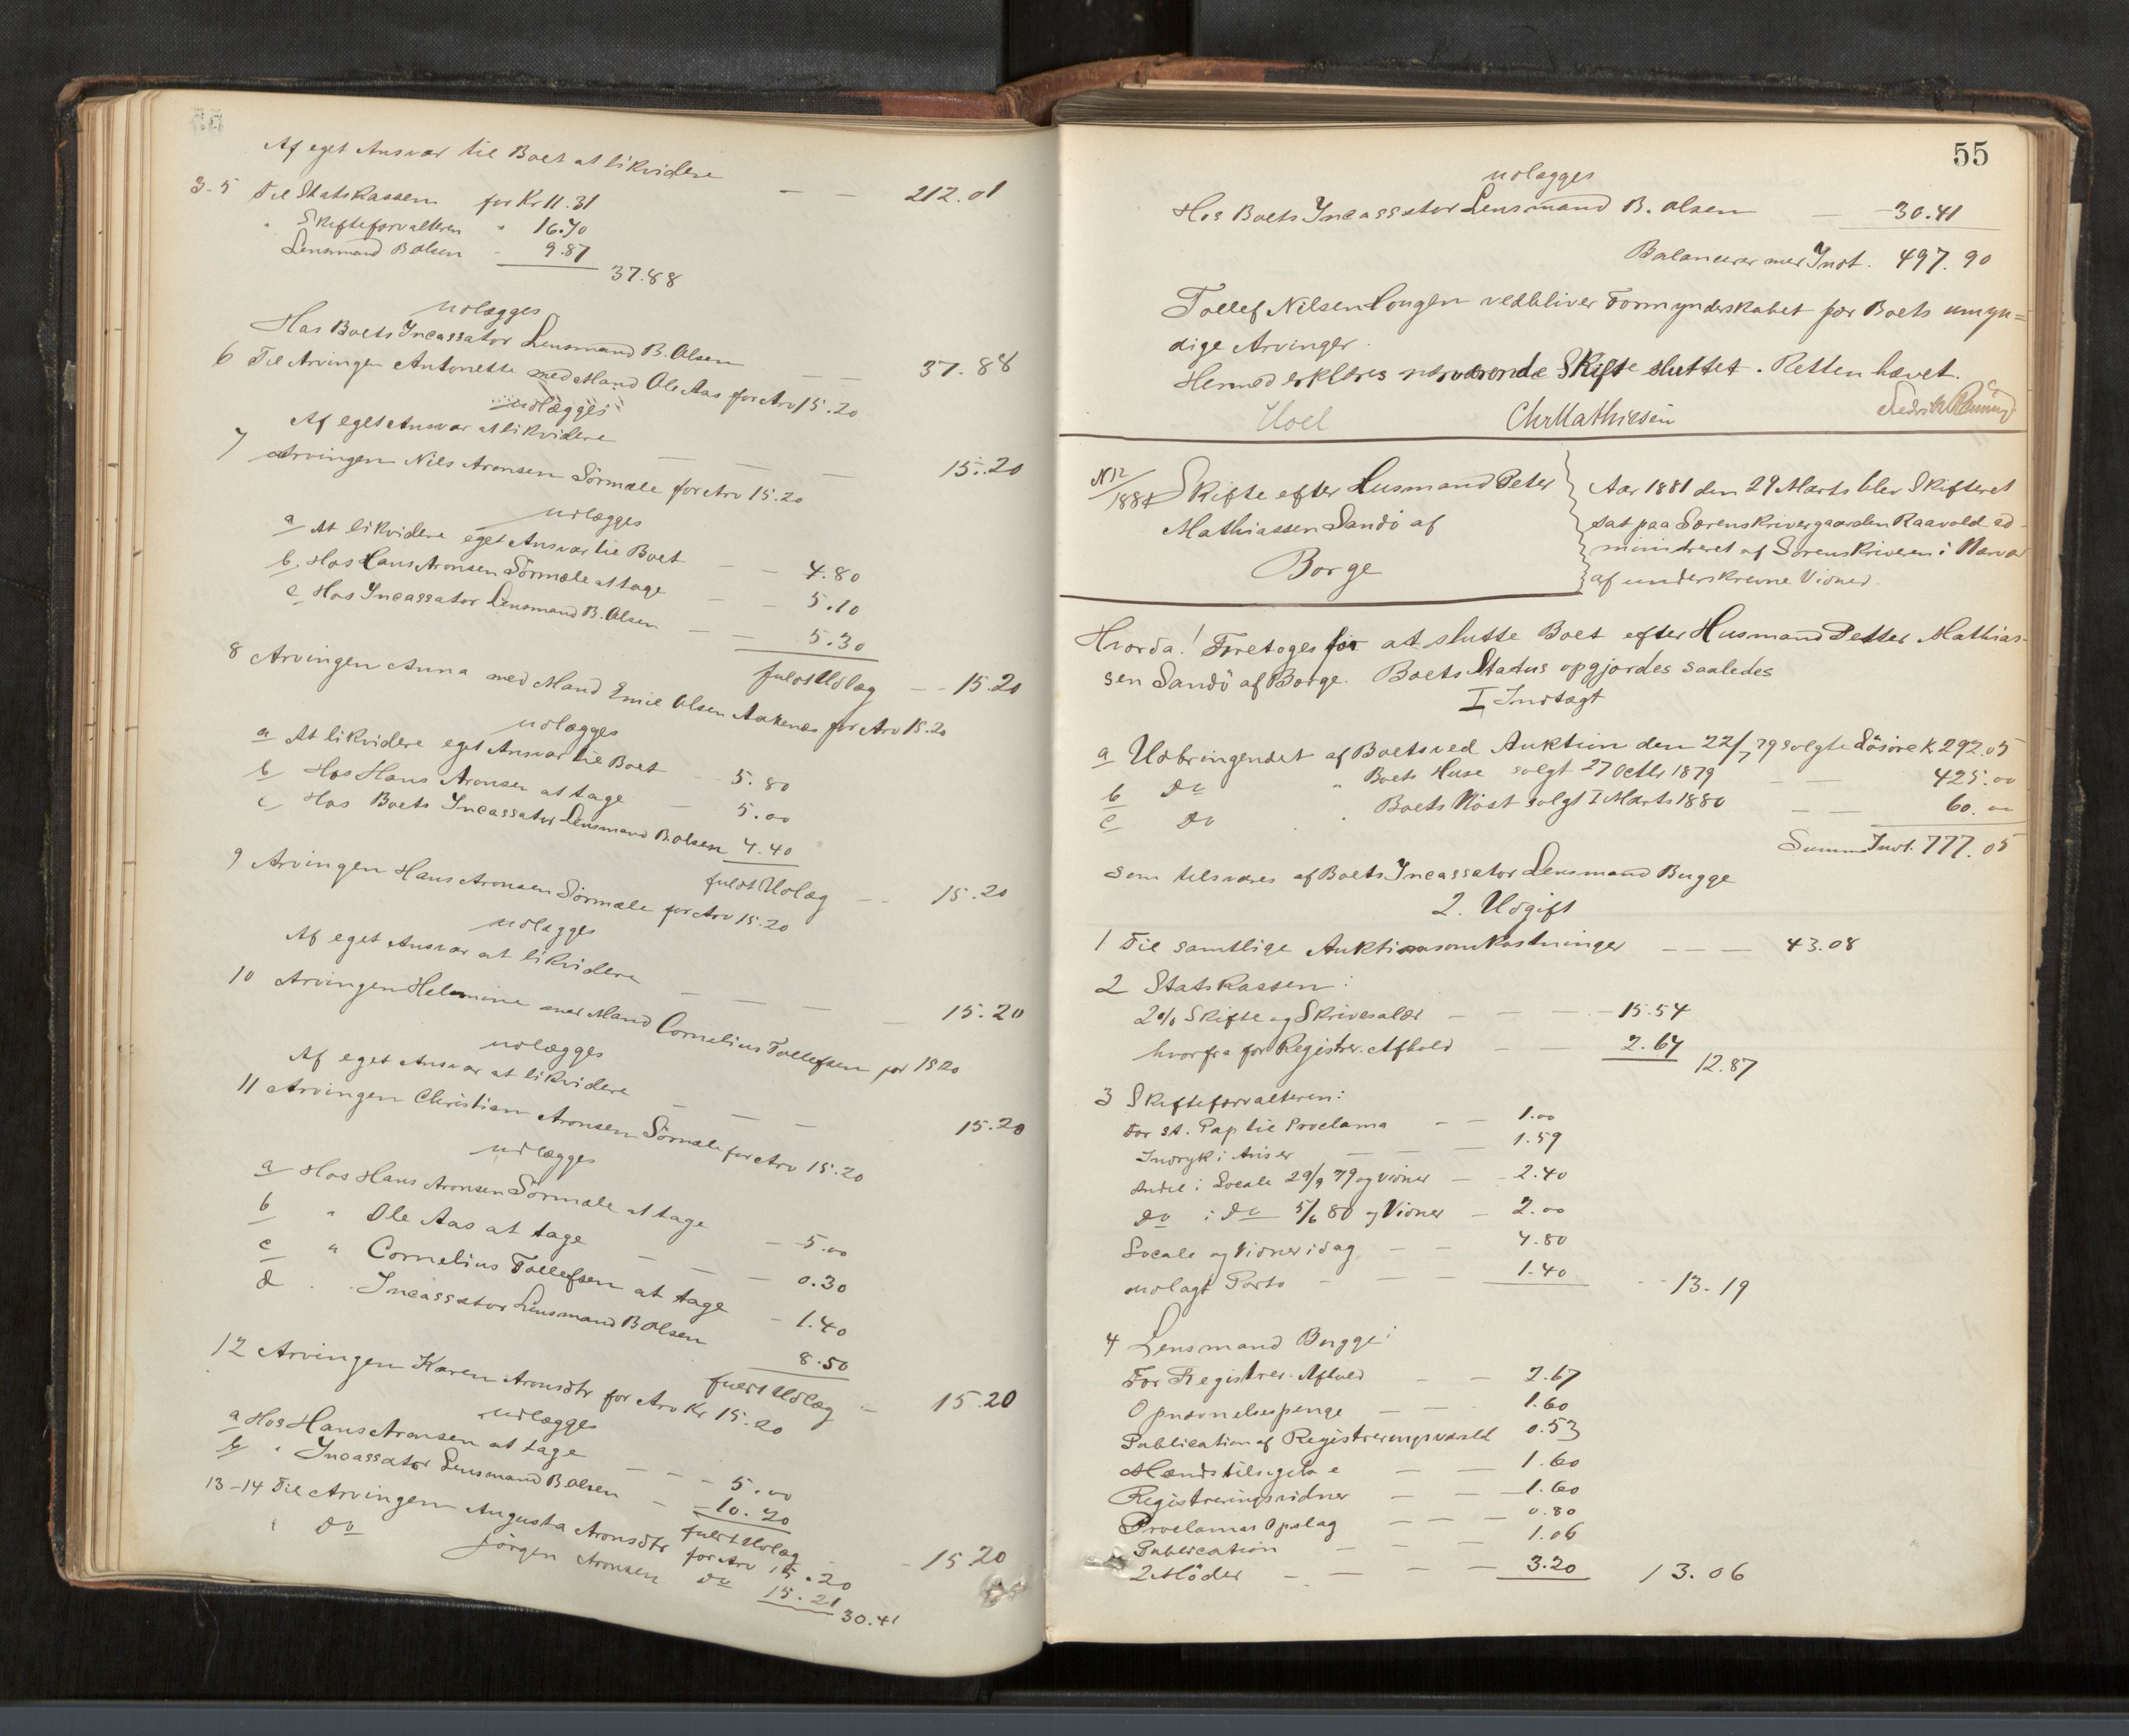 Af eget Ansvar til Boet at likvidere — — 212.01
3-5 Til Statskassen for Kr 11.31
" Skifteforvalteren " 16.70
Lensmand B Olsen - 9.87
37.88
udlægges
Hos Boets Incassator Lensmand B. Olsen — — 37.88
6 Til Arvingen Antonette med Mand Ole Aas for Arv 15.20
udlægges
Af eget Ansvar at likvidere — — — 15.20
7 Arvingen Nils Aronsen Sörmæle for Arv 15.20
udlægges
a At likvidere eget Ansvar til Boet — — 4.80
b. Hos Hans Aronsen Sörmæle at tage — — 5.10
c Hos Incassator Lensmand B. Olsen — — 5.30
fuldt Udlæg — - 15.20
8 Arvingen Anna med Mand Emil Olsen Aakenes for Arv 15.20
udlægges
a At likvidere eget Ansvar til Boet - - 5.80
b Hos Hans Aronsen at tage — 5.00
c Hos Boets Incassator Lensmand B. Olsen 4.40
fuldt Udlæg — - 15.20
9 Arvingen Hans Aronsen Sörmæle for Arv 15.20
udlægges
Af eget Ansvar at likvidere — — — — 15.20
10 Arvingen Helmine med Mand Cornelius Tollefsen for 15.20
udlægges
Af eget Ansvar at likvidere — — — 15.20
11 Arvingen Christian Aronsen Sörmæle for Arv 15.20
udlægges
a Hos Hans Aronsen Sörmæle at tage — 5.00
b " Ole Aas at tage — — — 0.30
c " Cornelius Tollefsen at tage - 1.40
d . Incassator Lensmand B Olsen 8.50
fuldt Udlæg — 15.20
12 Arvingen Karen Aronsdtr for Arv Kr 15.20
udlægges
a Hos Hans Aronsen at tage — — - 5.00
b " Incassator Lensmand B Olsen — 10.20
fuldt Udlæg - - 15 20
13-14 Til Arvingen Augusta Aronsdtr for Arv 15.20
" do Jörgen Aronsen do 15.21
30.41
55
udlægges
Hos Boets Incassator Lensmand B. Olsen — - 30.41
Balancerer med Indt. 497.90
Tollef Nilsen Longen vedbliver Formynderskabet for Boets umyn=
dige Arvinger.
Hermed erklæres nærværende Skifte sluttet. Retten hævet.
Hoel Chr Mathiesen Fredrik
N 12/1881 Skifte efter Husmand Peter
Mathiassen Sandö af
Borge
Aar 1881 den 29 Marts blev Skifteret
sat paa Sorenskrivergaarden Raavold ad-
ministreret af Sorenskriveren i Nærvær
af underskrevne Vidner.
Hvorda! Foretoges for at slutte Boet efter Husmand Petter Mathias-
sen Sandö af Borge. Boets Status opgjordes saaledes
I Indtægt
a Udbringendet af Boets ved Auktion den 22/7 79 solgte Lösöre K 292.05
b do " Boets Huse solgt 27 Octbr 1879 — — 425.00
c do . " Boets Nöst solgt I Marts 1880 — — 60.00
Summa Indt. 777.05
som tilsvares af Boets Incassator Lensmand Bugge
2. Udgift
1 Til samtlige Auktionsomkostninger — — — 43.08
2 Statskassen:
2% Skifte og Skrivesalær — — — 15.54
hvorfra for Registr. Afhold — — 2.67
12.87
3 Skifteforvalteren:
For st. Pap til Proclama - — 1.00
Indryk i Aviser — — — 1.59
Andel i Locale 29/9 79 og Vidner — - 2.40
do i do 5/6 80 og Vidner — 2.00
Locale og Vidner idag — — 4.80
udlagt Porto - — — — 1.40
- - 13.19
4 Lensmand Bugge:
For Registrer. Afhold — — 2.67
Opnævnelsespenge — — 1.60
Publication af Registreringsvarsel 0.53
Mænds tilsigelse — — 1.60
Registreringsvidner — — — 1.60
Proclamas Opslag — — — 0.80
Publication — — — 1.06
2 Möder — — — — 3.20
13.06